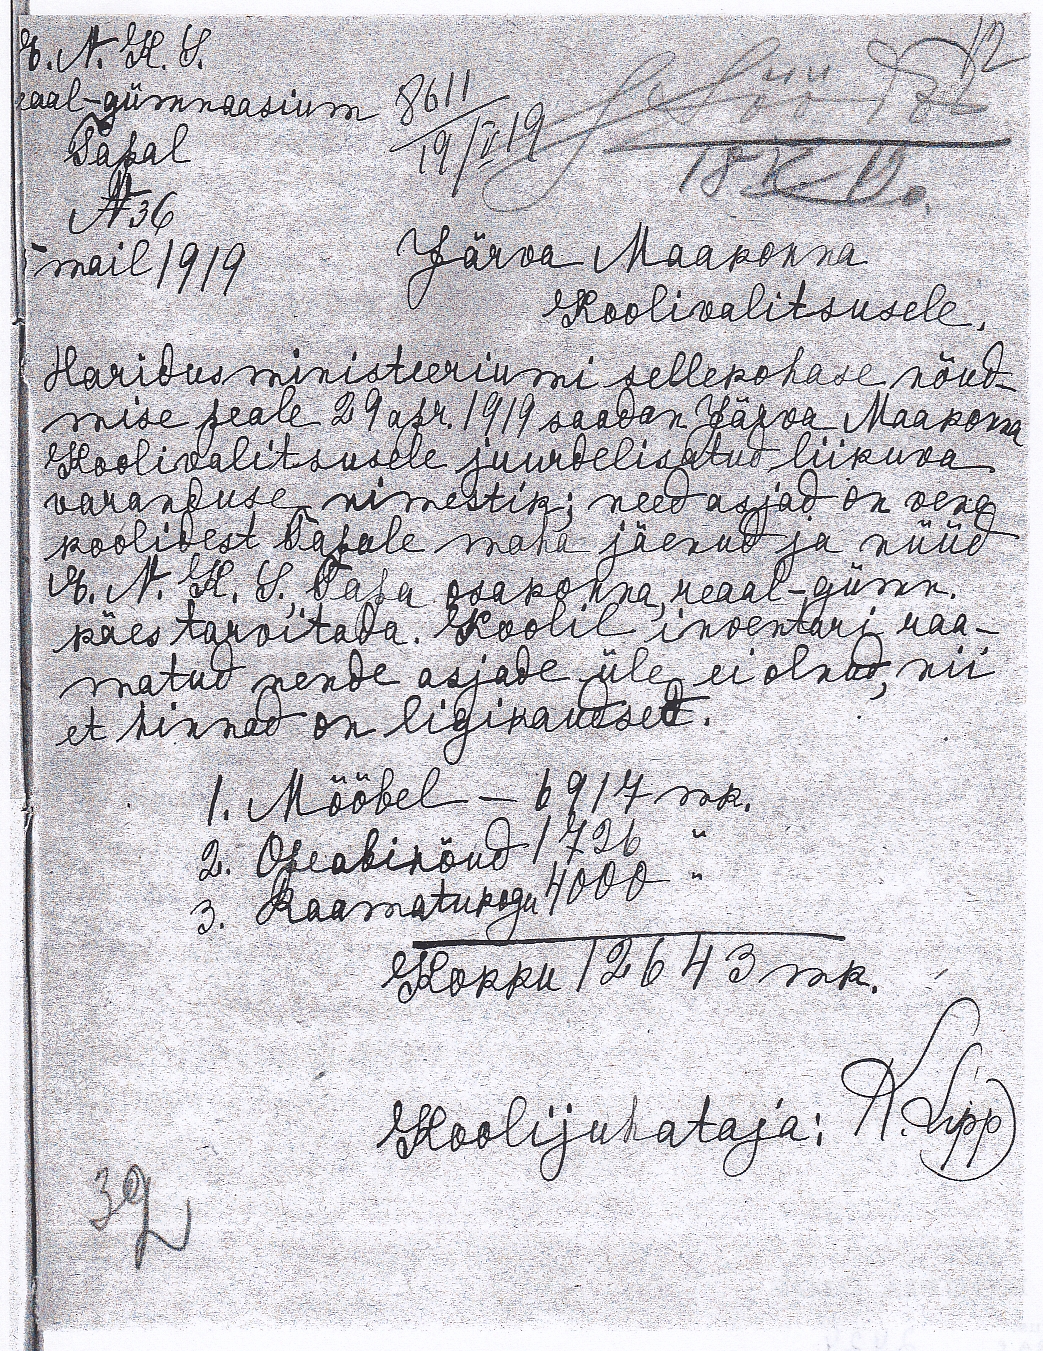 E. N. K. S.
eaal-gümnaasium
Tapal
N 36
mail 1919
8611
19/V 19
12
18
Järva Maakonna
Koolivalitsusele.
Haridusministeeriumi sellekohase nõud-
mise peale 29 apr. 1919 saadan Järva Maakonna
Koolivalitsusele juurdelisatud liikuva
varanduse nimestik; need asjad on vene
koolidest Tapale maha jäenud ja nüüd
E. N. K. S. Tapa osakonna reaal-gümn.
käes tarvitada. Koolil inventari raa-
matud nende asjade üle ei olnud, nii
et hinnad on ligikaudsed.
1. Mööbel — 6917 mk.
2. Õpeabinõud 1726 "
3. Raamatukogu 4000 "
Kokku 12643 mk.
Koolijuhataja: K. Lipp
32